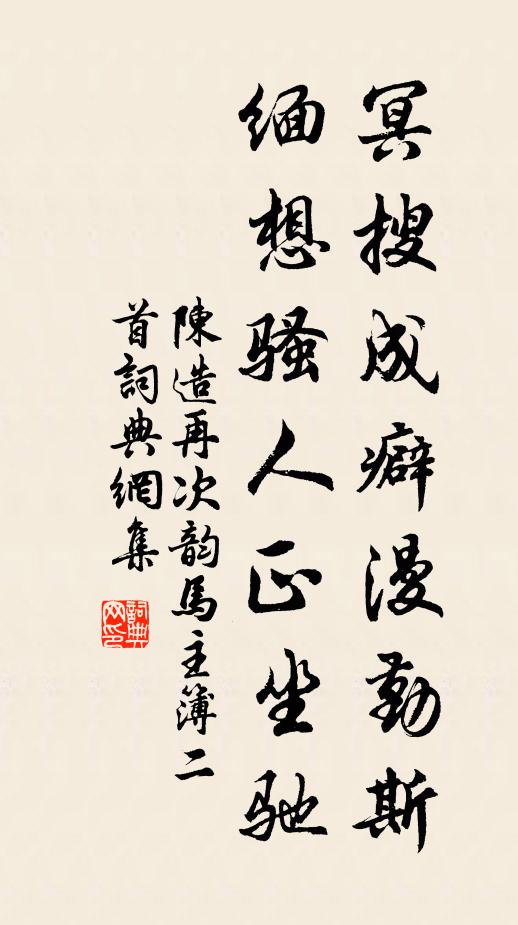 冥搜成癖漫勤斯
緬想騷人正坐馳
陳造再次韵馬主簿二
首詞典網集
詞典
网印